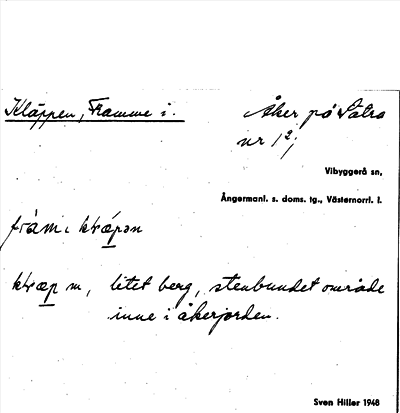 Kläppen, Framme i.
Åker på Sätra
nr 1²;
Vibyggerå sn,
Ångermanl. s. doms. tg., Västernorrl. l.
fràm i klǽpən
klæp m, litet berg, stenbundet område
inne i åkerjorden.
Sven Hiller 1948